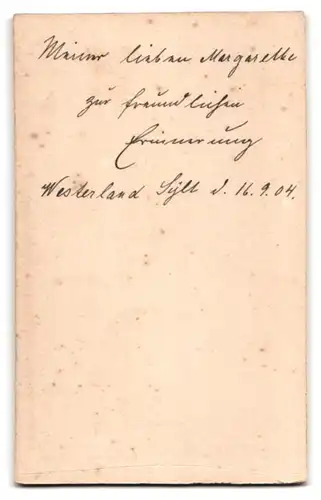 Meiner lieben Margarethe
zur freundlichen
Erinnerung
Westerland Sylt d. 16.9.04.